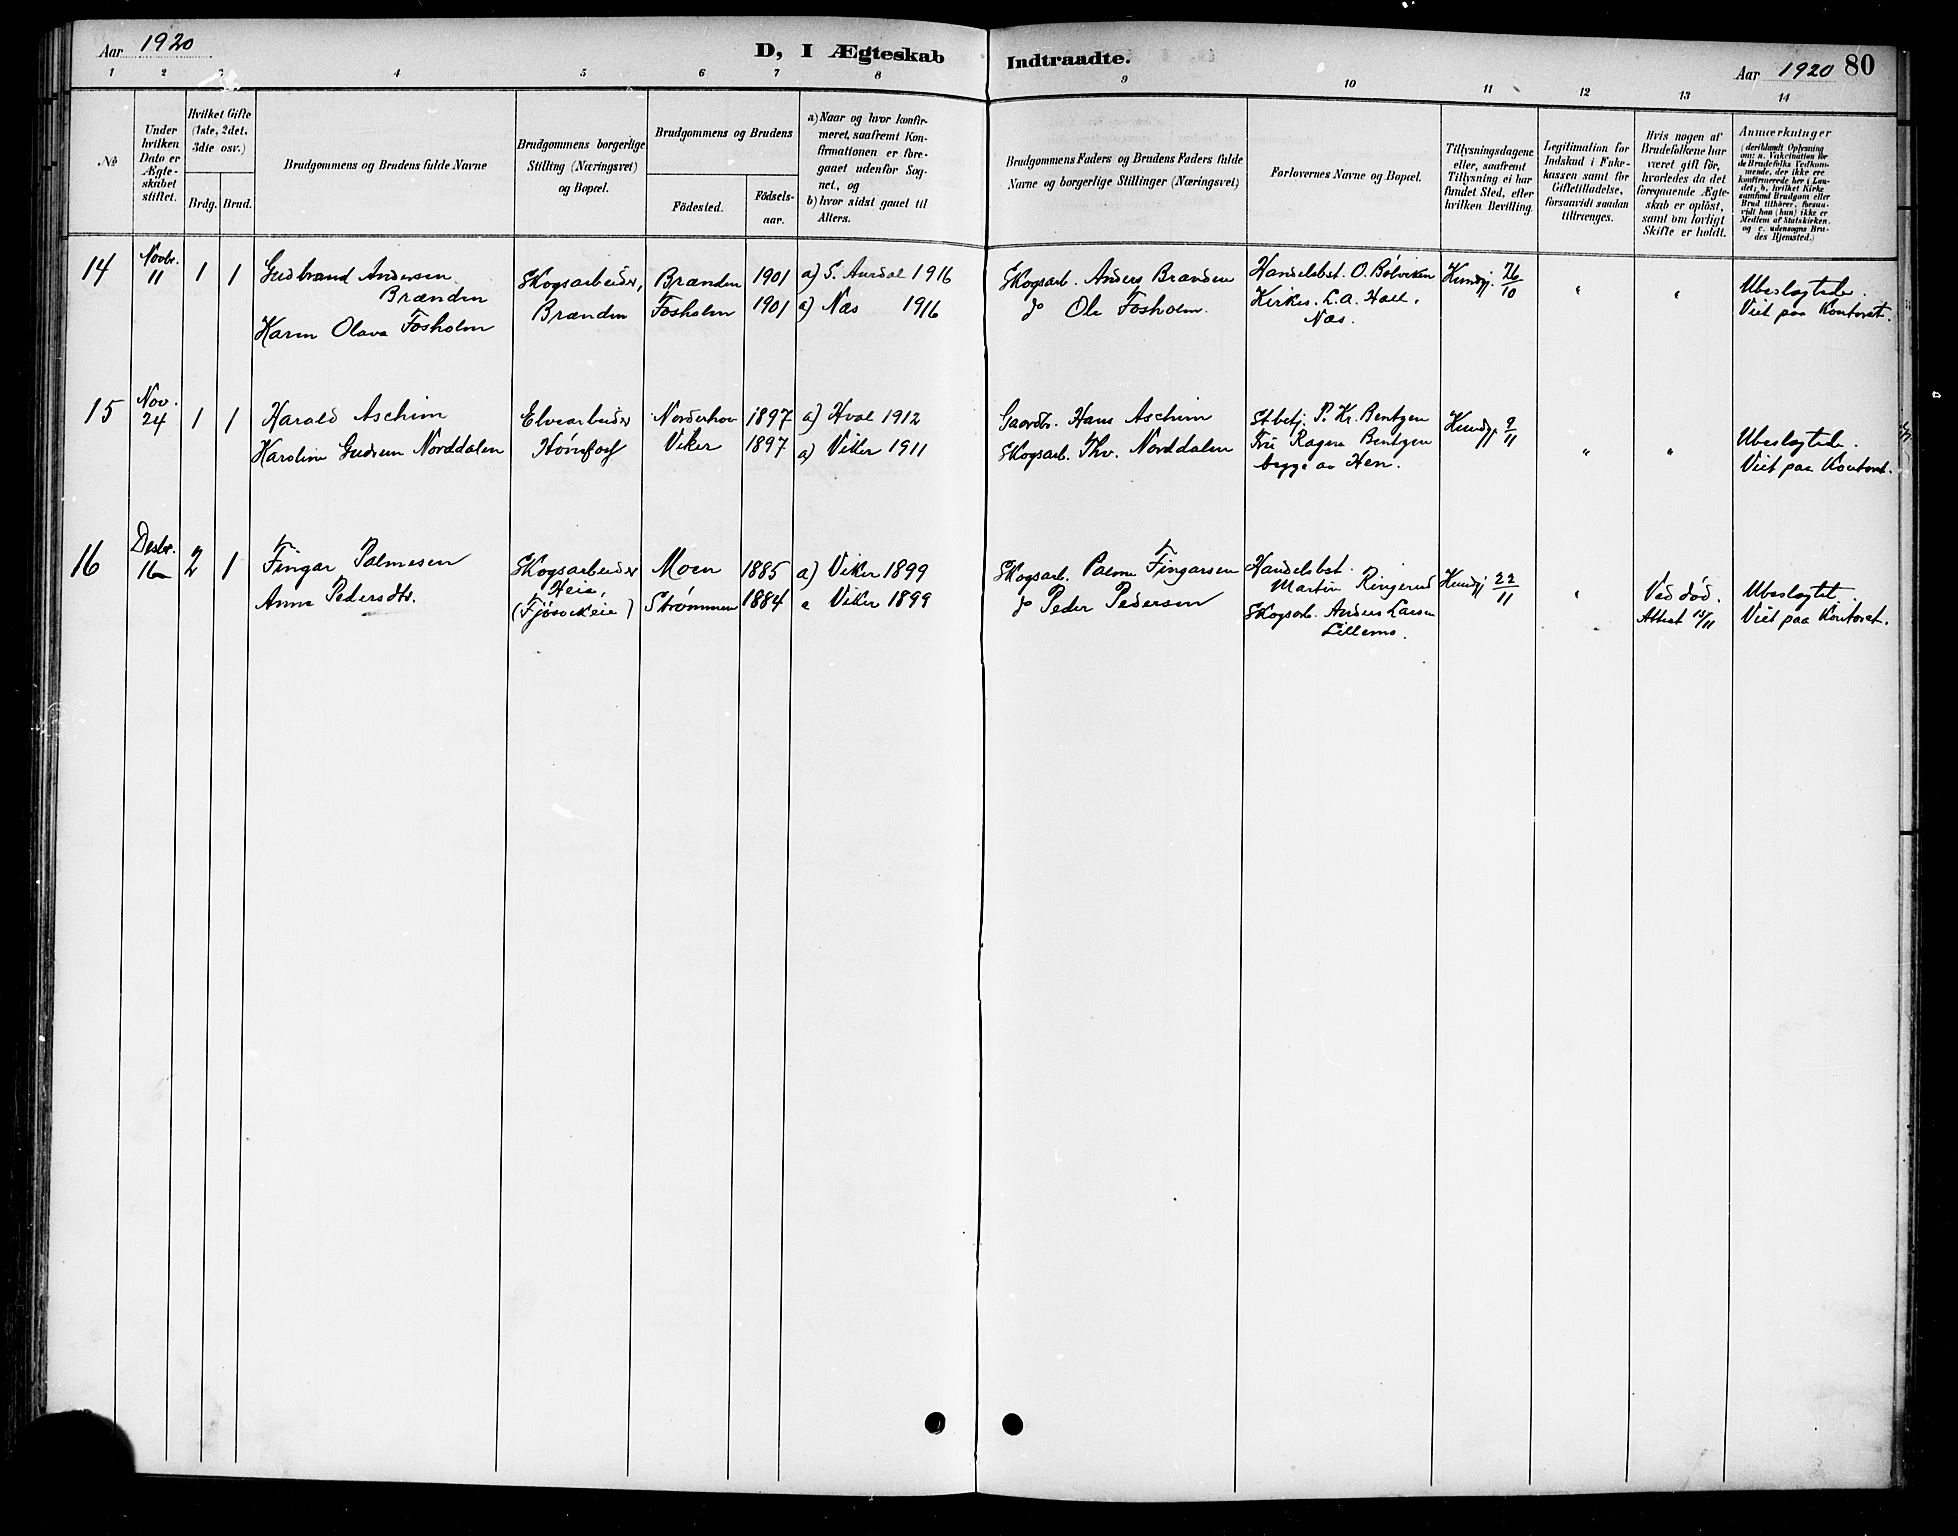 Aar 1920
D, I Ægteskab Indtraadte.
Aar 1920 80
1 2 3 4 5 6 7 8 9 10 11 12 13 14
№
Under hvilken Dato er Ægteskabet stiftet.
Hvilket Gifte (1ste, 2det, 3die osv.)
Brdg. Brud.
Brudgommens og Brudens fulde Navne
Brudgommens borgerlige Stilling (Næringsvei) og Bopæl.
Brudgommens og Brudens
Födested.
Födselsaar.
a) Naar og hvor konfirmeret, saafremt Konfirmationen er foregaaet udenfor Sognet, og
b) hvor sidst gaaet til Alters.
Brudgommens Faders og Brudens Faders fulde Navne og borgerlige Stillinger (Næringsvei)
Forlovernes Navne og Bopæl.
Tillysningsdagene eller, saafremt Tillysning ei har fundet Sted, efter hvilken Bevilling.
Legitimation for Indskud i Enkekassen samt for Giftetilladelse, forsaavidt saadan tiltrænges.
Hvis nogen af Brudefolkene har været gift för, hvorledes da det foregaaende Ægteskab er oplöst, samt om lovligt Skifte er holdt.
Anmærkninger
(deriblandt Oplysning om: a. Vakcination for de Brudefolks Vedkommende, der ikke ere konfirmerede her i Landet; b. hvilket Kirkesamfund Brudgom eller Brud tilhörer, forsaavidt han (hun) ikke er Medlem af Statskirken. og c. udensogns Brudes Hjemsted.)
14 Novbr. 11 1 1
Gudbrand Andersen
Brænden
Karen Olava Fosholm
Skogsarbeider,
Brænden
Brænden 1901 a) S. Aurdal 1916
Fosholm 1901 a) Næs 1916
Skogsarb. Anders Brænden
do Ole Fosholm.
Handelsbst. O. Bølviken
Kirkes. L.A. Hall,
Næs.
Kundgj. 26/10
" "
Ubeslægtede.
Viet paa Kontoret.
15 Nov. 24 1 1
Harald Aschim
Karoline Gudrun Norddalen
Elvearbeider
Hønefoss
Norderhov 1897 a) Hval 1912
Viker 1897 a) Viker 1911
Gaardbr. Hans Aschim
Skogsarb. Thv. Norddalen
St.betj. P. Kr. Bentzen
Fru Ragna Bentzen
begge av Hen.
Kundgj 9/11
" "
Ubeslægtede.
Viet paa Kontoret.
16 Desbr. 16 2 1
Fingar Palmesen
Anne Pedersdtr.
Skogsarbeider
Heie,
(Fjøsvikeie)
Moen 1885 a) Viker 1899
Strømmen 1884 a Viker 1899
Skogsarb. Palme Fingarsen
do Peder Pedersen
Handelsbst.
Martin Ringerud
Skogsarb. Anders Larsen
Lillemo.
Kundgj 22/11
"
Ved død.
Attest 15/11
Ubeslægtet.
Viet paa Kontoret.